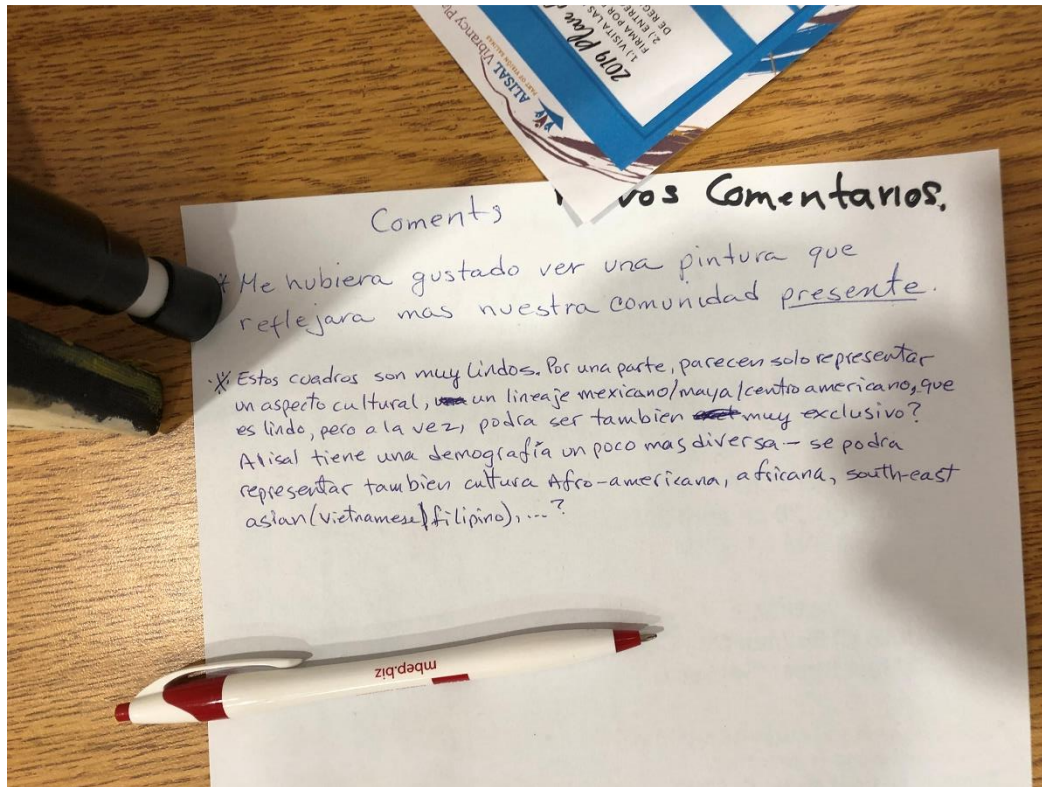 2019 Plan
1.) VISITA LAS
FIRMA POR
2.) ENTRE
DE REG
ALISAL Vibrancy
PART OF VISIÓN SALINAS
Coments
Comentarios.
* Me hubiera gustado ver una pintura que
reflejara mas nuestra comunidad presente.
* Estos cuadros son muy lindos. Por una parte, parecen solo representar
un aspecto cultural, un lineaje mexicano/maya/centroamericano, que
es lindo, pero a la vez, podra ser tambien muy exclusivo?
Alisal tiene una demografía un poco mas diversa - se podra
representar tambien cultura Afro-americana, africana, south-east
asian (vietnamese/filipino), ...?
mbep.biz